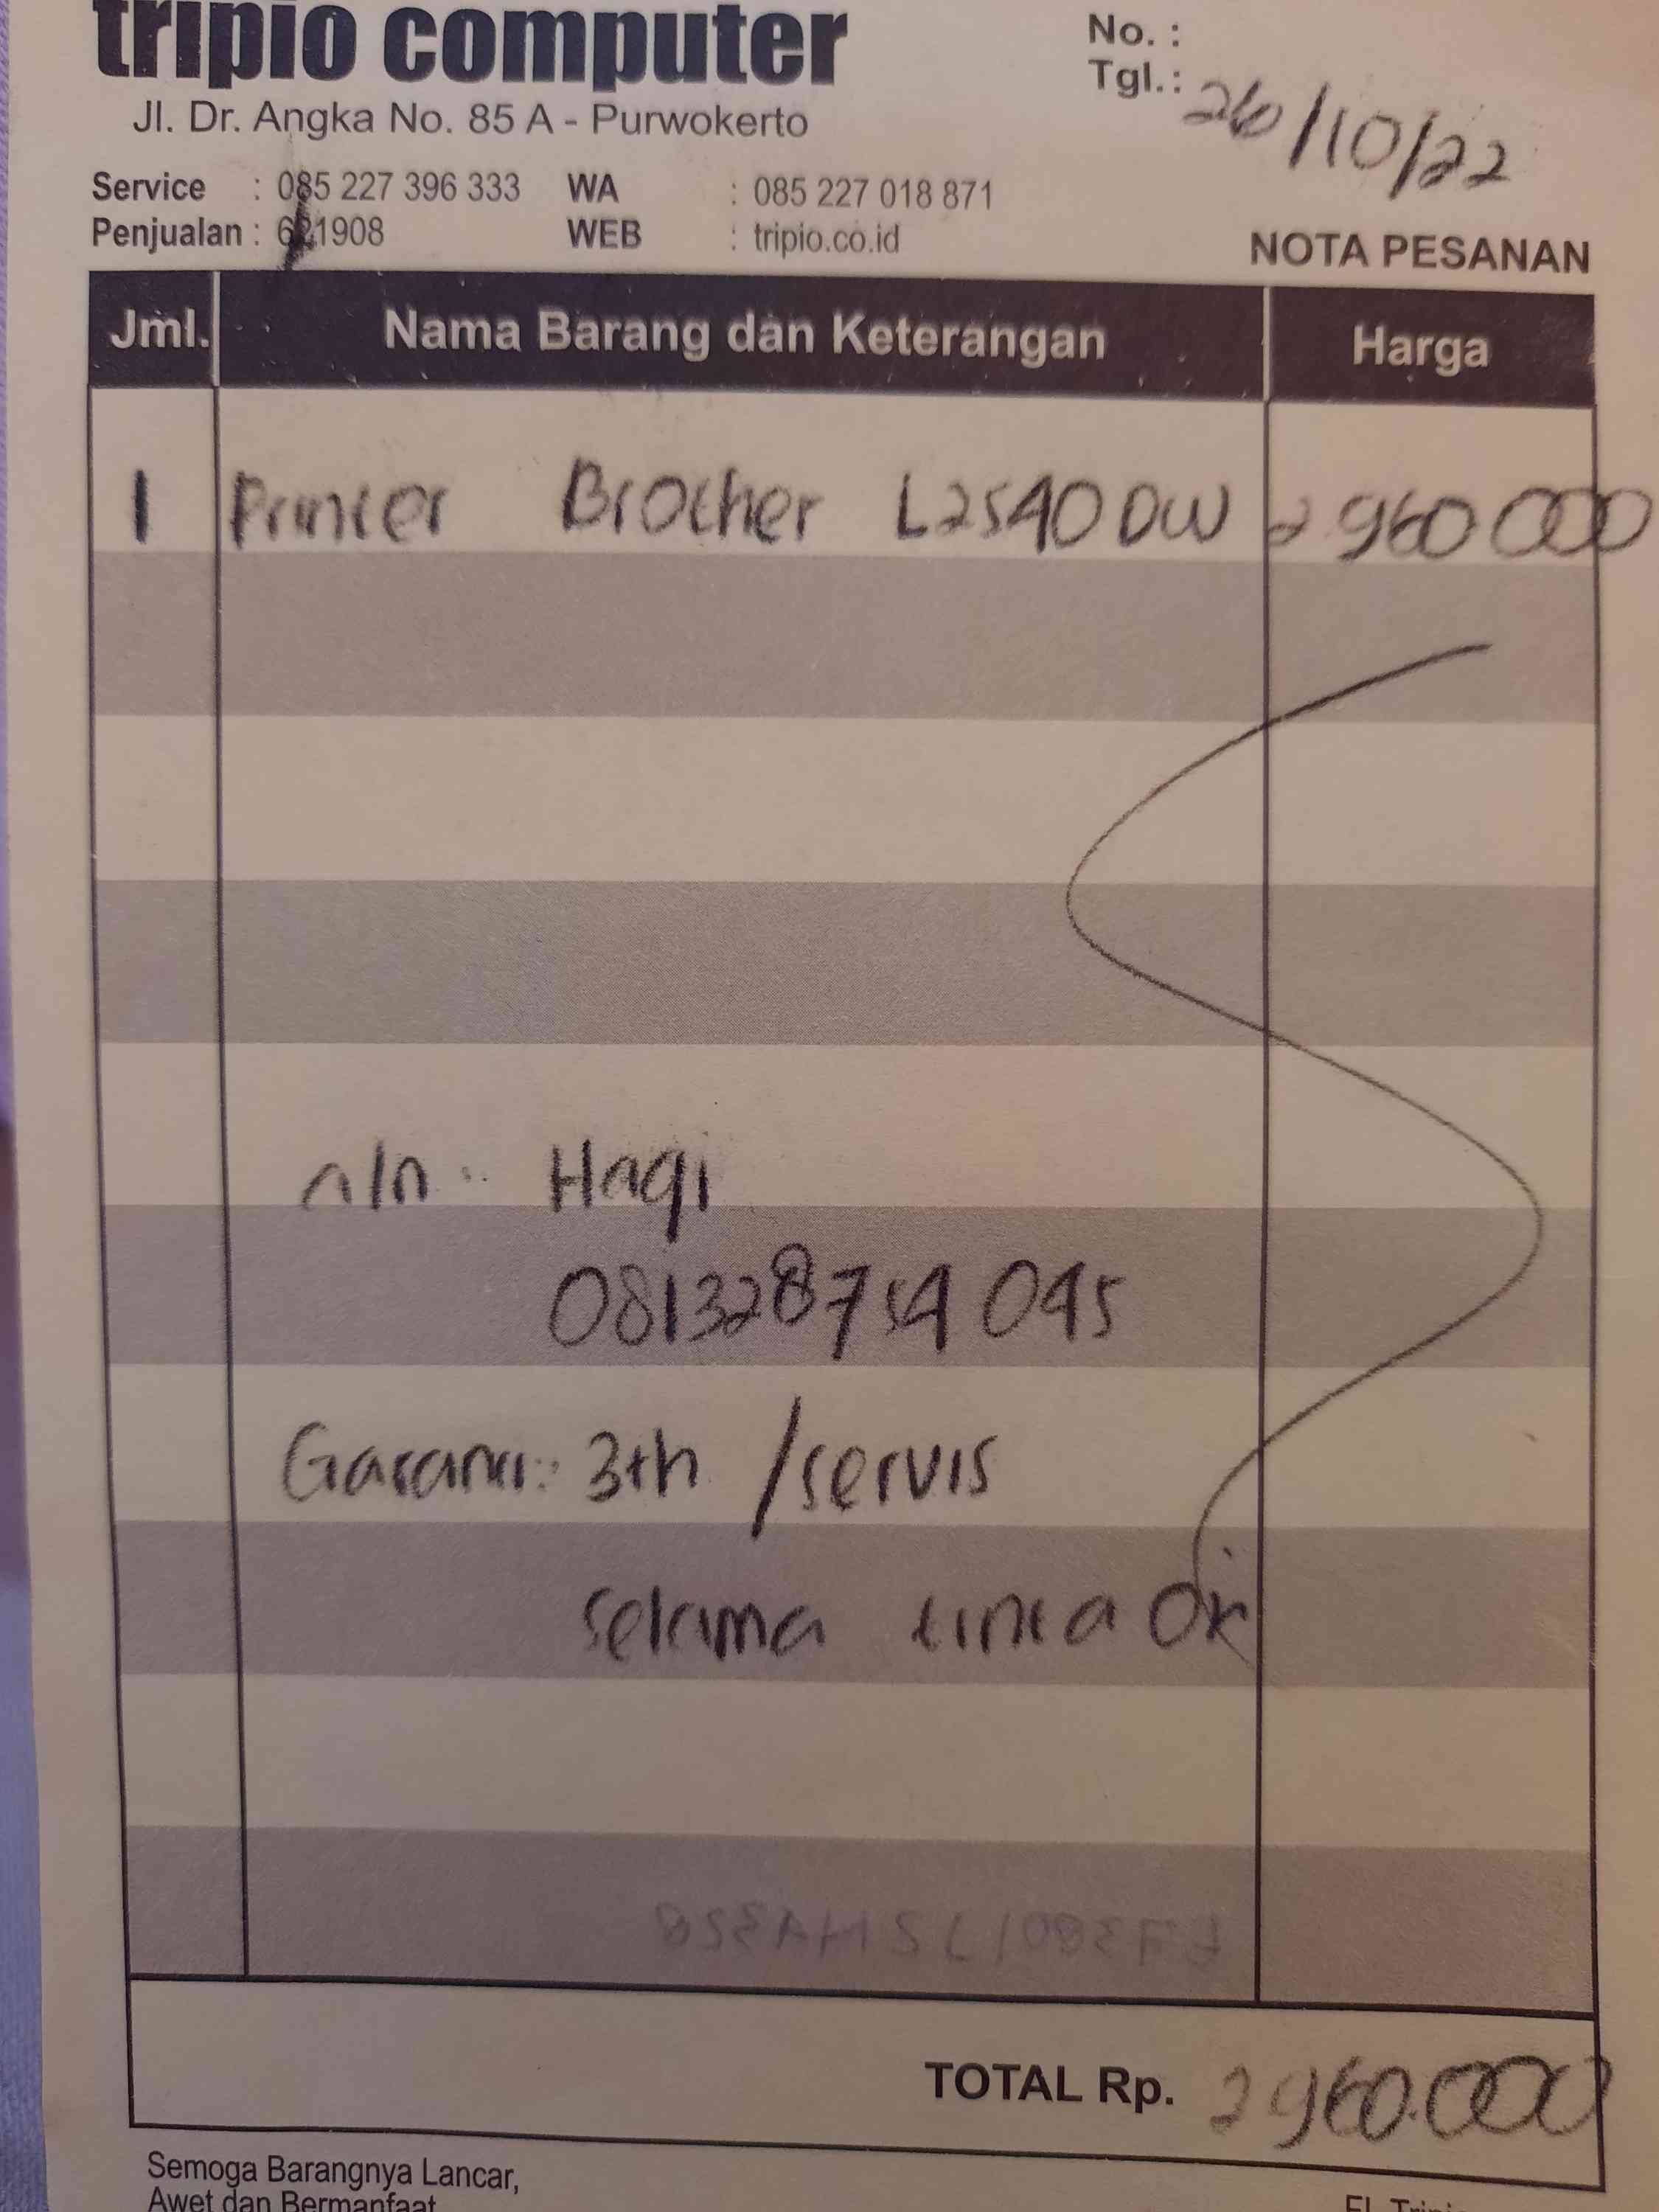 tripio computer
Jl. Dr. Angka No. 85 A - Purwokerto
Service : 085 227 396 333 WA : 085 227 018 871
Penjualan : 621908 WEB : tripio.co.id
No. :
Tgl.: 26/10/22
NOTA PESANAN
Jml. Nama Barang dan Keterangan Harga
1 Printer Brother L2540DW 2.960 000
a/n : Haqi
081328754 045
Garansi: 3th /servis
selama tinta Ori
TOTAL Rp. 2960.000
Semoga Barangnya Lancar,
Awet dan Bermanfaat